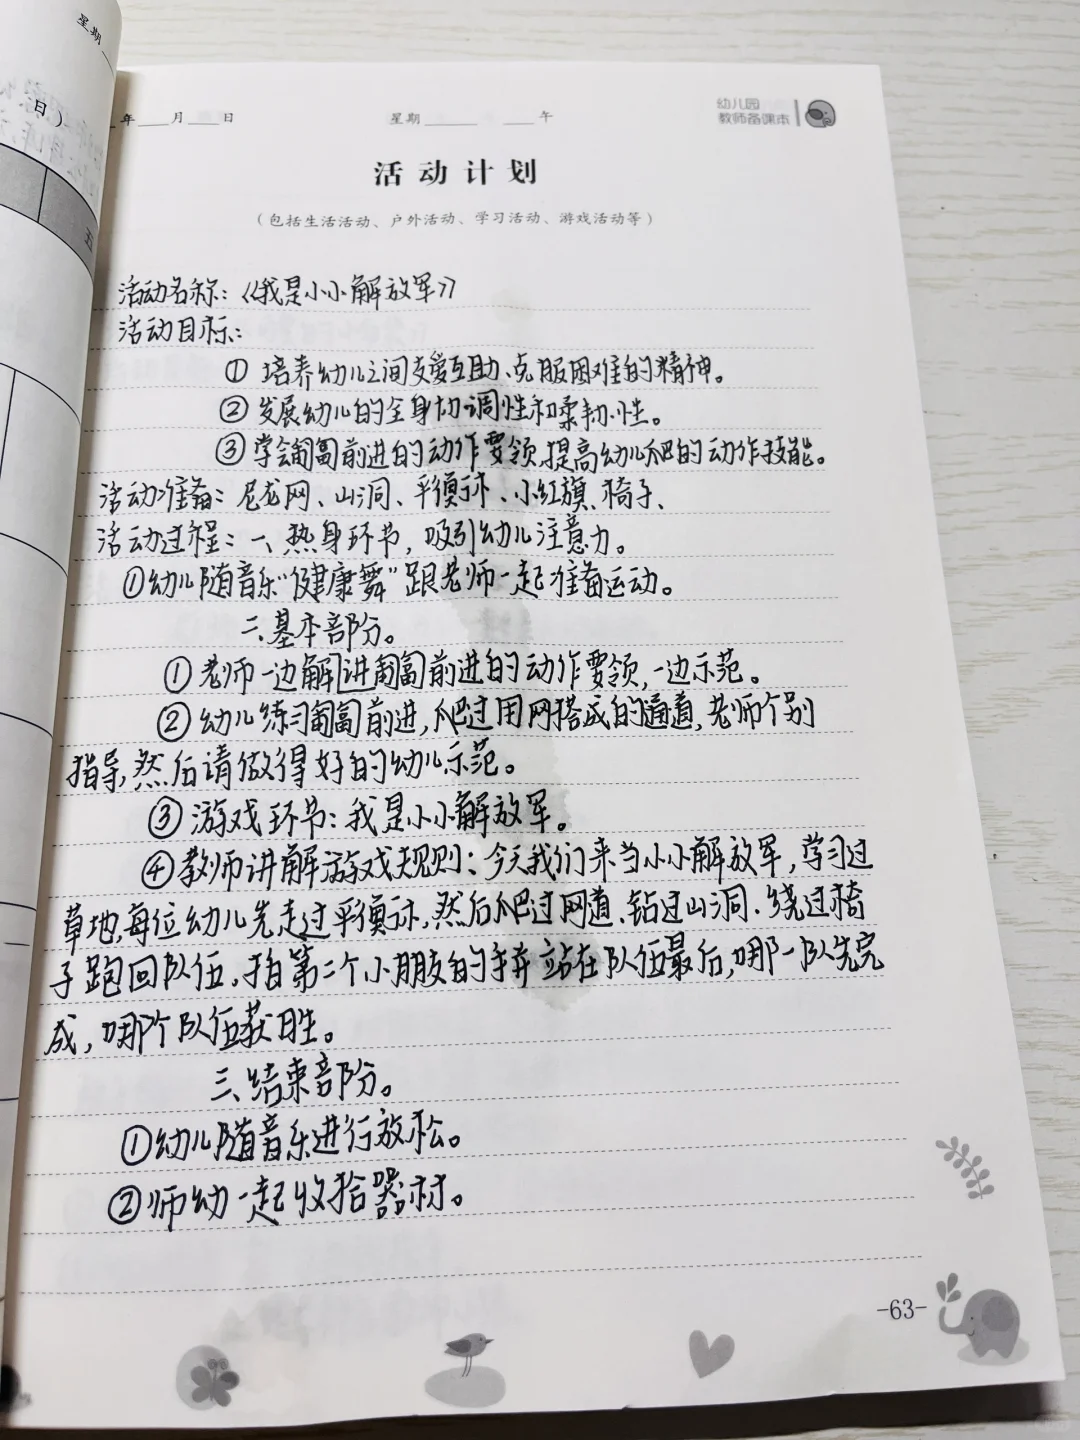 星期
日）
五
年____月____日 星期______ ____午
幼儿园
教师备课本
活动计划
（包括生活活动、户外活动、学习活动、游戏活动等）
活动名称：《我是小小解放军》
活动目标：
① 培养幼儿之间友爱互助、克服困难的精神。
② 发展幼儿的全身协调性和柔韧性。
③ 学会匍匐前进的动作要领,提高幼儿爬的动作技能。
活动准备：尼龙网、山洞、平衡木、小红旗、椅子、
活动过程：一、热身环节，吸引幼儿注意力。
①幼儿随音乐“健康舞”跟老师一起准备运动。
二、基本部分。
① 老师一边解讲匍匐前进的动作要领，一边示范。
② 幼儿练习匍匐前进，爬过用网搭成的通道，老师个别
指导，然后请做得好的幼儿示范。
③ 游戏环节：我是小小解放军。
④教师讲解游戏规则：今天我们来当小小解放军，学习过
草地，每位幼儿先走过平衡木，然后爬过网道、钻过山洞、绕过椅
子跑回队伍，拍第二个小朋友的手并站在队伍最后，哪一队先完
成，哪个队伍获胜。
三、结束部分。
①幼儿随音乐进行放松。
②师幼一起收拾器材。
-63-